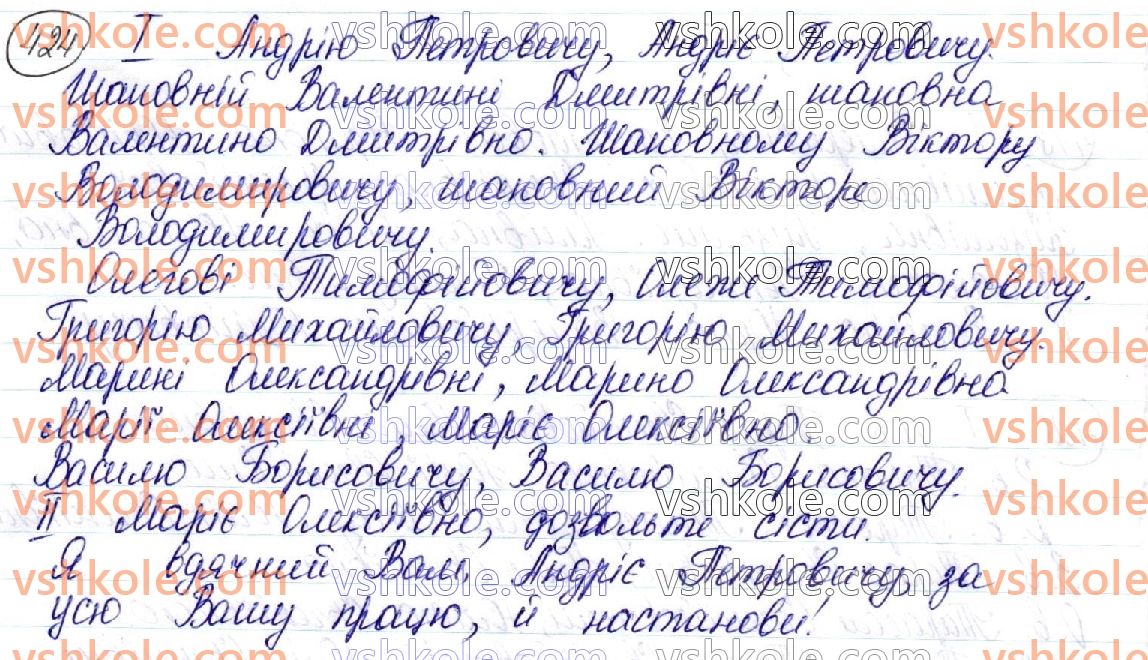 424 I Андрію Петровичу, Андріє Петровичу.
Шановній Валентині Дмитрівні, шановна
Валентино Дмитрівно. Шановному Віктору
Володимировичу, шановний Вікторе
Володимировичу.
Олегові Тимофійовичу, Олеже Тимофійовичу.
Григорію Михайловичу, Григорію Михайловичу.
Марині Олександрівні, Марино Олександрівно
Марії Олексіївні, Маріє Олексіївно.
Василю Борисовичу, Василю Борисовичу.
II Маріє Олексіївно, дозвольте сісти.
Я вдячний Вам, Андріє Петровичу, за
усю Вашу працю, й настанови!